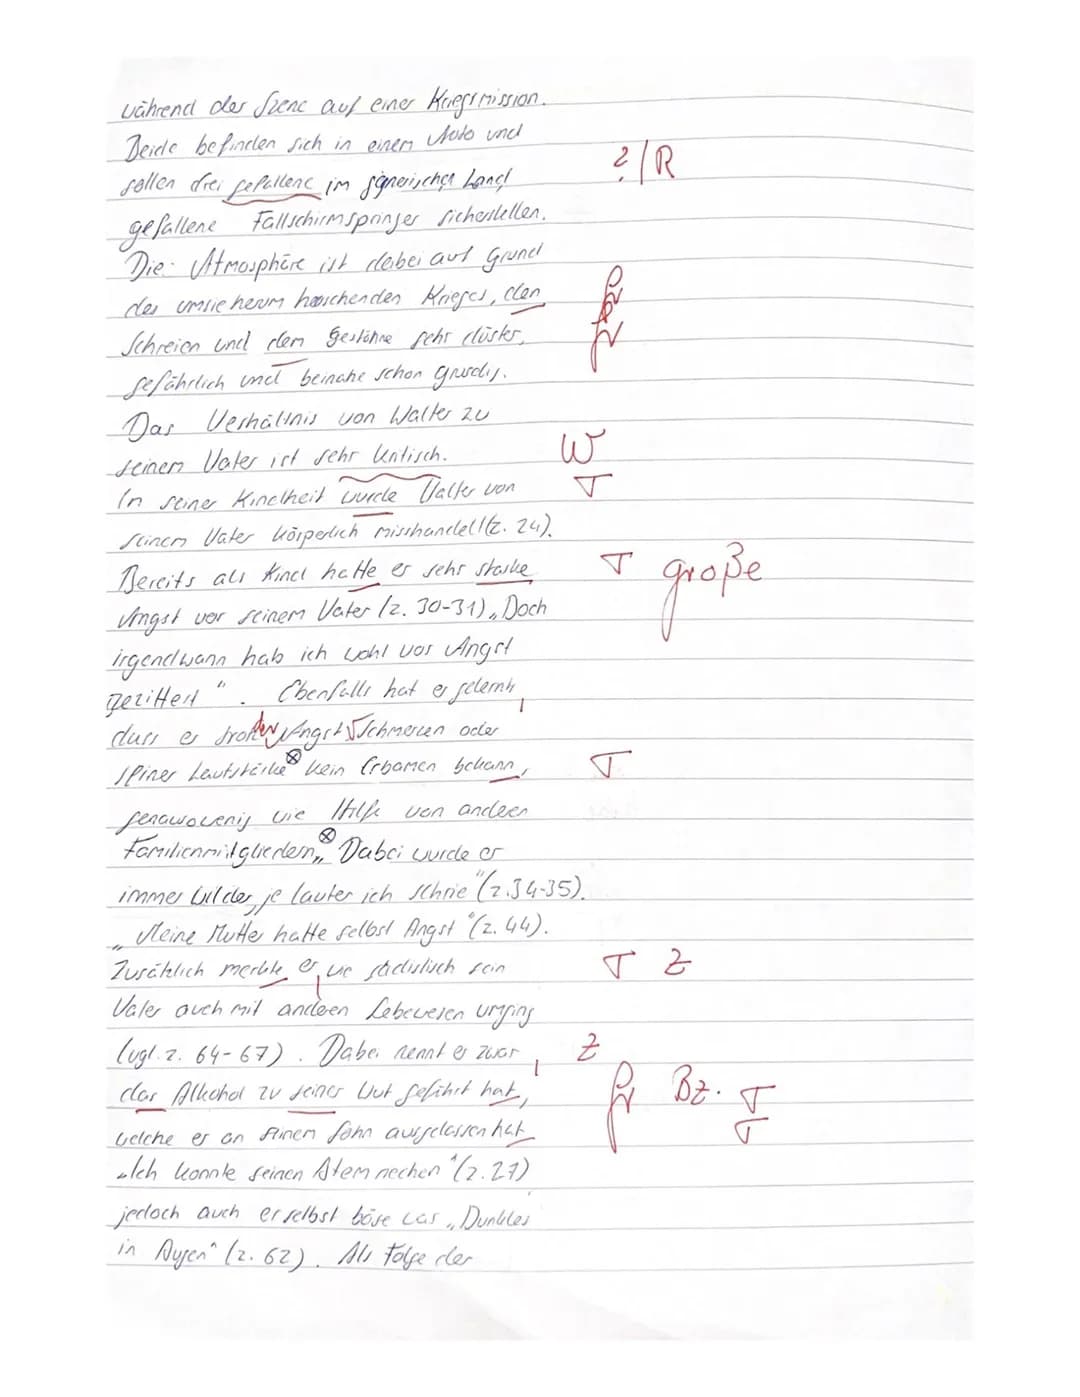 während der Szene auf einer Kriegsmission.
Beide befinden sich in einem Auto und
sollen drei gefallene im Land ?/R
gefallene Fallschirmspringer sicherstellen.
Die Atmosphäre ist dabei auf Grund
des umsie herum herrschenden Krieges, den Gr
Schreien und dem Gestöhne sehr düster, Gr
gefährlich und beinahe schon gruselig.
Das Verhältnis von Walter zu
seinem Vater ist sehr kritisch. W
In seiner Kindheit wurde Walter von T
seinem Vater körperlich misshandelt (z. 24).
Bereits als Kind hatte er sehr starke T große
Angst vor seinem Vater (z. 30-31) „Doch
irgendwann hab ich wohl vor Angst
gezittert“. Ebenfalls hat er gelernt,
dass er trotz der Angst, Schmerzen oder
seiner Lautstärke ⊗ kein Erbamen bekamm, T
genawowenig wie Hilfe von anderen
Familienmitgliedern ⊗ „Dabei wurde er
immer wilder, je lauter ich schrie“ (z. 34-35).
„Meine Mutter hatte selbst Angst“ (z. 44).
Zusätzlich merkte er, wie sadistisch sein T Z
Vater auch mit anderen Lebewesen umging
(vgl. z. 64-67). Dabei nennt er zwar, Z
das Alkohol zu seiner Wut geführt hat, Gr Bz. T
welche er an seinem Sohn ausgelassen hat T
„Ich konnte seinen Atem riechen“ (z. 27)
jedoch auch er selbst böse war „Dunkles
in Augen“ (z. 62). Als Folge der